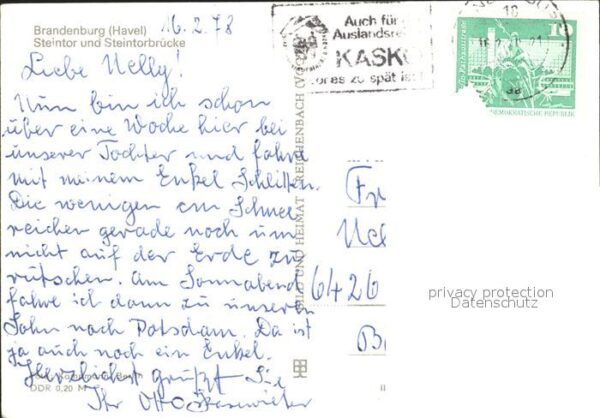 Brandenburg (Havel)
Steintor und Steintorbrücke
16.2.78
Auch für
Auslandsreisen
KASKO
zu spät ist
10
DEMOKRATISCHE REPUBLIK
Liebe Nelly!
Nun bin ich schon
über eine Woche hier bei
unserer Tochter und fahre
mit meinem Enkel Schlitten.
Die wenigen cm Schnee
reichen gerade noch um
nicht auf der Erde zu
rutschen. Am Sonnabend
fahre ich dann zu unserem
Sohn nach Potsdam. Da ist
ja auch noch ein Enkel.
Herzlichst grüßt Sie
Ihr Otto
DDR 0,20 M
BILD UND HEIMAT REICHENBACH
Fr
Nel
6426
privacy protection
Datenschutz